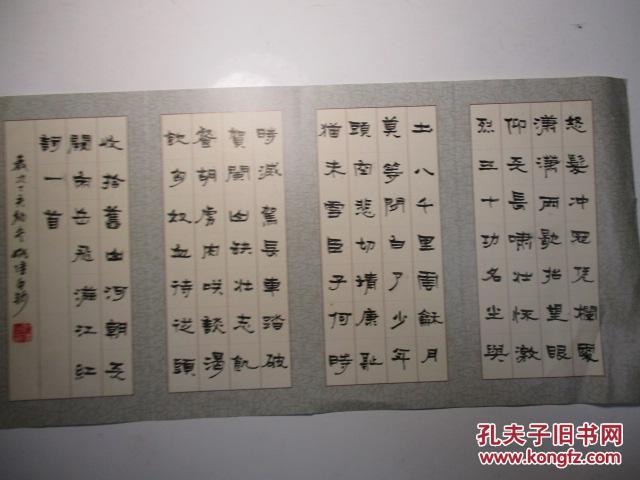 怒髮冲冠凭欄處
瀟瀟雨歇抬望眼
仰天長嘯壮懷激
烈三十功名尘與
土八千里雲龢月
莫等閒白了少年
頭空悲切靖康恥
猶未雪臣子何時
時滅駕長車踏破
賀蘭山缺壮志飢
餐胡虏肉咲談渴
飲匈奴血待從頭
收拾舊山河朝天
闕宋岳飛滿江紅
詞一首
孔夫子旧书网
www.kongfz.com